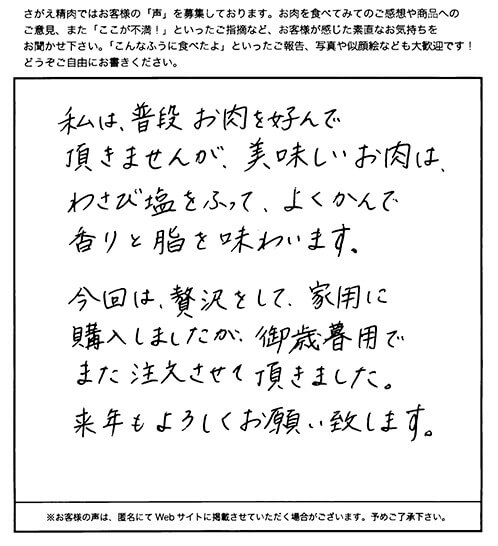 さがえ精肉ではお客様の「声」を募集しております。お肉を食べてみてのご感想や商品への
ご意見、また「ここが不満！」といったご指摘など、お客様が感じた素直なお気持ちを
お聞かせ下さい。「こんなふうに食べたよ」といったご報告、写真や似顔絵なども大歓迎です！
どうぞご自由にお書きください。
私は、普段 お肉を好んで
頂きませんが、美味しいお肉は、
わさび塩をふって、よくかんで
香りと脂を味わいます。
今回は、贅沢をして、家用に
購入しましたが、御歳暮用で
また注文させて頂きました。
来年もよろしくお願い致します。
※お客様の声は、匿名にてWebサイトに掲載させていただく場合がございます。予めご了承下さい。